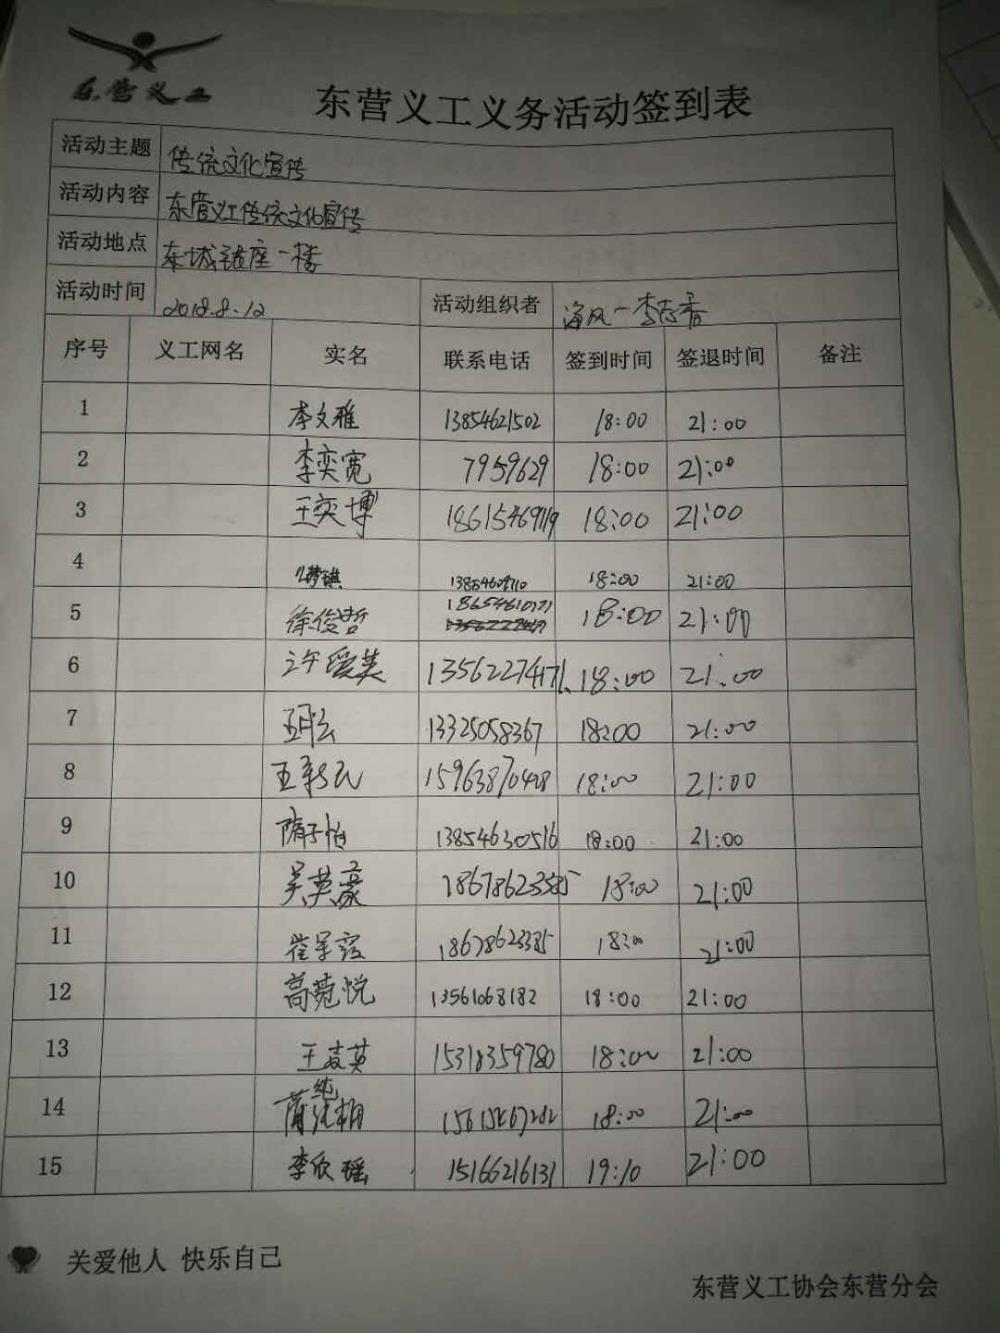 东营义工
东营义工义务活动签到表
活动主题 传统文化宣传
活动内容 东营义工传统文化宣传
活动地点 东城银座一楼
活动时间 2018.8.12 活动组织者 海风-李志香
序号 义工网名 实名 联系电话 签到时间 签退时间 备注
1 李文雅 13854621502 18:00 21:00
2 李奕宽 7959629 18:00 21:00
3 王奕博 18615469119 18:00 21:00
4 13854608710 18:00 21:00
5 徐俊哲 18654610171 18:00 21:00
6 许爱英 13562274171 18:00 21:00
7 13325058367 18:00 21:00
8 王新民 15963870428 18:00 21:00
9 隋子怡 13854630516 18:00 21:00
10 吴英豪 18:00 21:00
11 18678623385 18:00 21:00
12 高菀悦 13561068182 18:00 21:00
13 王英 15318359780 18:00 21:00
14 18:00 21:00
15 李欣瑶 15166216131 19:10 21:00
关爱他人 快乐自己
东营义工协会东营分会